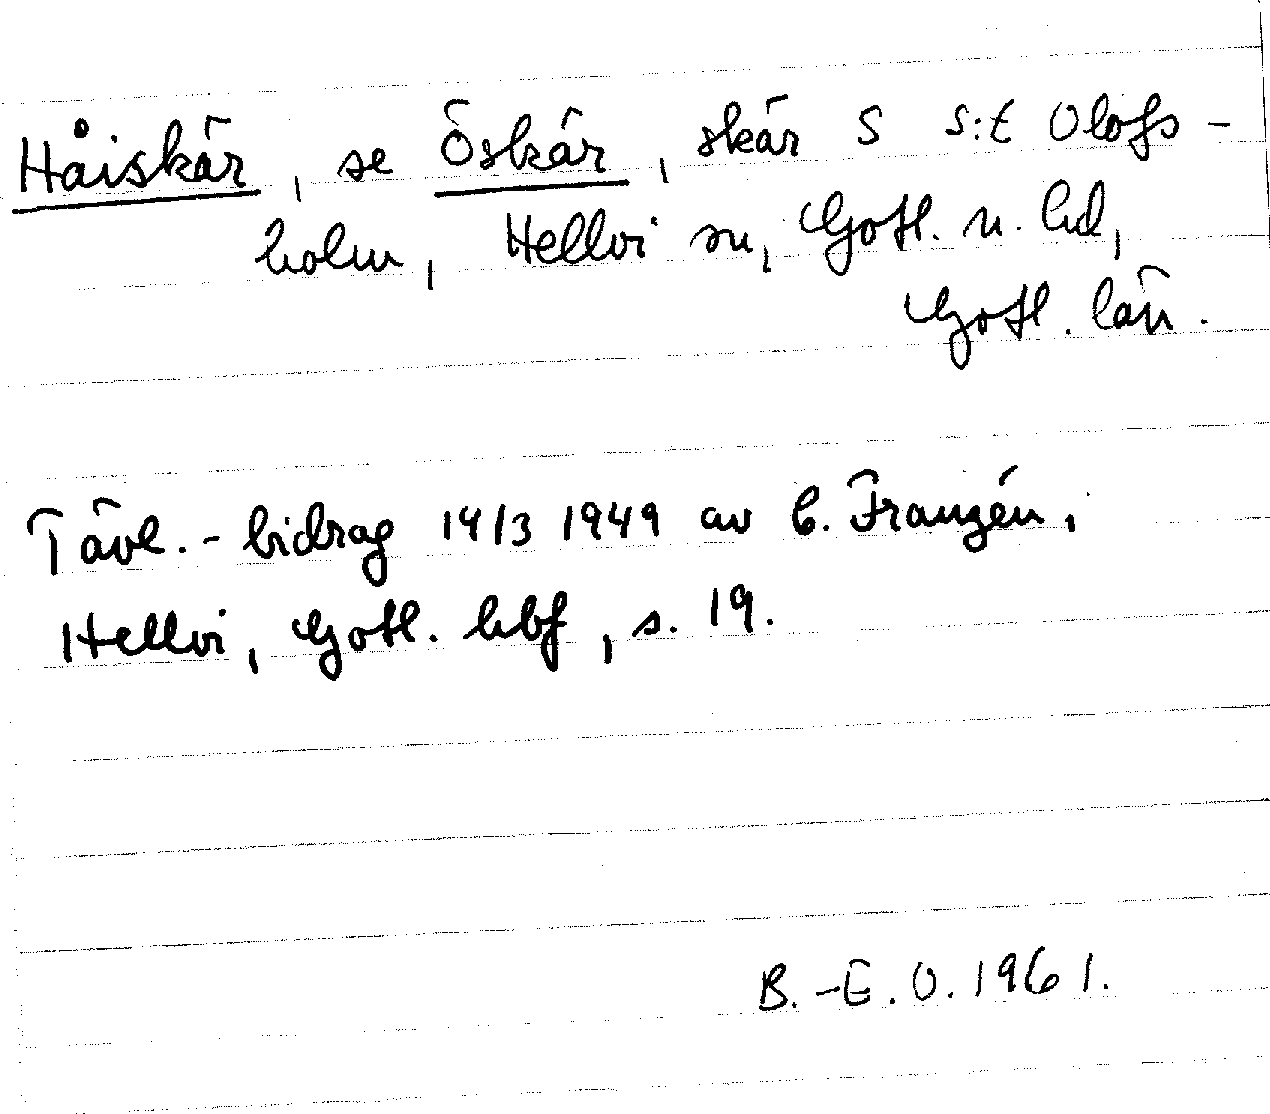 Håiskär, se Öskär, skär S S:t Olofs-
holm, Hellvi sn, Gotl. n. hd,
Gotl. län.
Tävl.-bidrag 14/3 1949 av C. Franzén,
Hellvi, Gotl. hbf, s. 19.
B.-E. O. 1961.